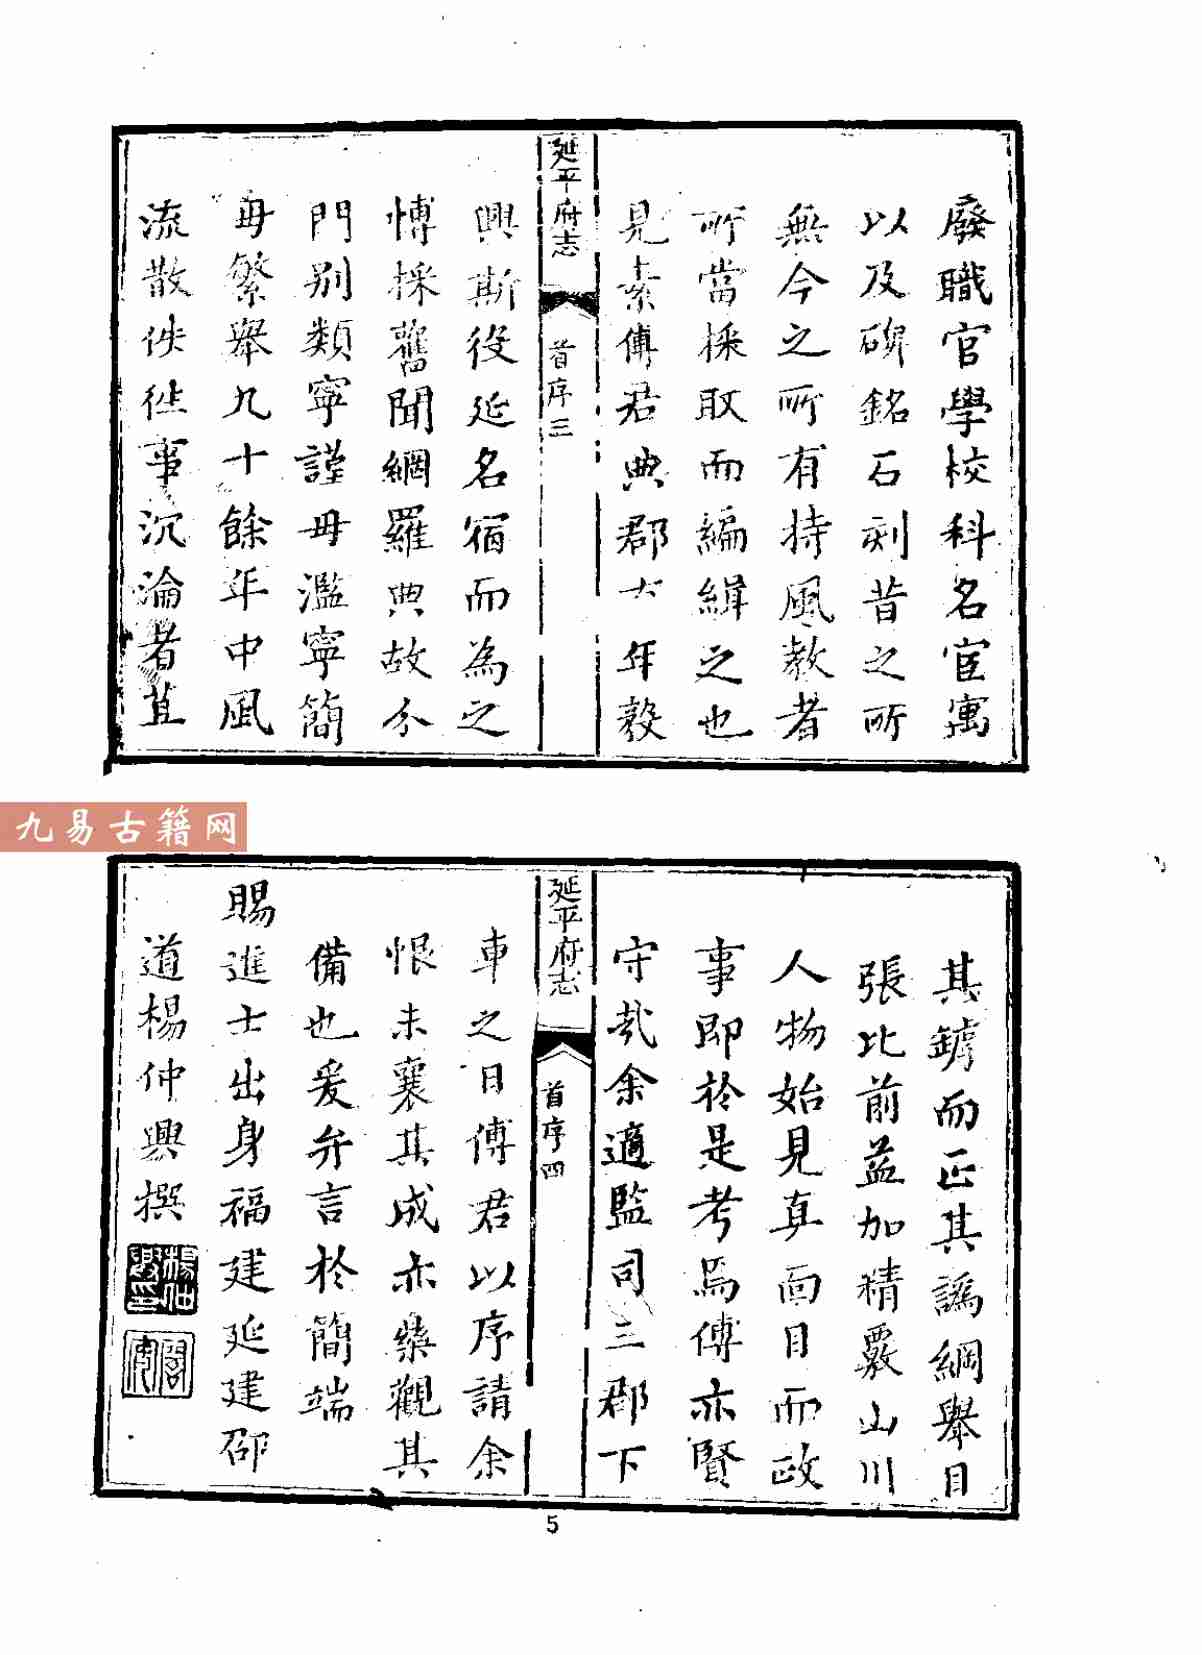 廢職官學校科名宦寓
以及碑銘石刻昔之所
無今之所有持風敎者
所當採取而編緝之也
見素傅君典郡六年殺
延平府志
首序三
興斯役延名宿而為之
愽採舊聞網羅典故分
門別類寧謹毋濫寧簡
毋繁舉九十餘年中風
流散佚徃事沉淪者苴
九易古籍网
其罅而正其譌綱舉目
張比前益加精覈山川
人物始見真面目而政
事即於是考焉傅亦賢
守㢤余適監司三郡下
延平府志
首序四
車之日傅君以序請余
恨未襄其成亦樂觀其
備也爰弁言於簡端
賜進士出身福建延建邵
道楊仲興撰
楊仲興印
5